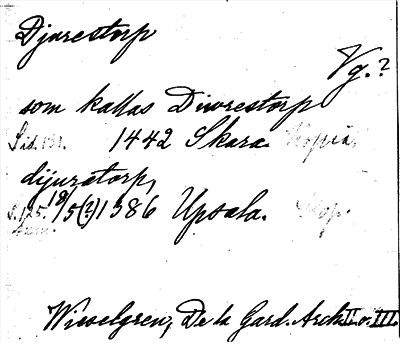 Djurestorp
Vg.?
som kallas Diwrestorp
Sid. 131. 1442 Skara. Kopia.
dijuratorp,
S. 125. 18/5(?) 1386 Upsala. Kop.
Wieselgren, De la Gard. Arch. II o. III.